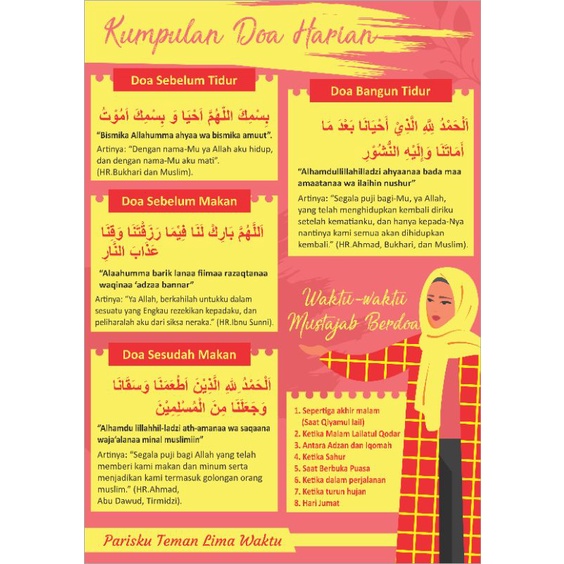 Kumpulan Doa Harian
Doa Sebelum Tidur
بِسْمِكَ اللّٰهُمَّ اَحْيَا وَ بِسْمِكَ اَمُوْتُ
“Bismika Allahumma ahyaa wa bismika amuut”.
Artinya: “Dengan nama-Mu ya Allah aku hidup,
dan dengan nama-Mu aku mati”.
(HR.Bukhari dan Muslim).
Doa Sebelum Makan
اَللّٰهُمَّ بَارِكْ لَنَا فِيْمَا رَزَقْتَنَا وَقِنَا
عَذَابَ النَّارِ
“Alaahumma barik lanaa fiimaa razaqtanaa
waqinaa ‘adzaa bannar”
Artinya: “Ya Allah, berkahilah untukku dalam
sesuatu yang Engkau rezekikan kepadaku, dan
peliharalah aku dari siksa neraka.” (HR.Ibnu Sunni).
Doa Sesudah Makan
اَلْحَمْدُ لِلّٰهِ الَّذِيْنَ اَطْعَمَنَا وَسَقَانَا
وَجَعَلَنَا مِنَ الْمُسْلِمِيْنَ
“Alhamdu lillahhil-ladzi ath-amanaa wa saqaana
waja’alanaa minal muslimiin”
Artinya: “Segala puji bagi Allah yang telah
memberi kami makan dan minum serta
menjadikan kami termasuk golongan orang
muslim.” (HR.Ahmad,
Abu Dawud, Tirmidzi).
Doa Bangun Tidur
اَلْحَمْدُ لِلّٰهِ الَّذِيْ اَحْيَانَا بَعْدَ مَا
اَمَاتَنَا وَإِلَيْهِ النُّشُوْرِ
“Alhamdullillahilladzi ahyaanaa bada maa
amaatanaa wa ilaihin nushur”
Artinya: “Segala puji bagi-Mu, ya Allah,
yang telah menghidupkan kembali diriku
setelah kematianku, dan hanya kepada-Nya
nantinya kami semua akan dihidupkan
kembali.” (HR.Ahmad, Bukhari, dan Muslim).
Waktu-waktu
Mustajab Berdoa
1. Sepertiga akhir malam
(Saat Qiyamul lail)
2. Ketika Malam Lailatul Qodar
3. Antara Adzan dan Iqomah
4. Ketika Sahur
5. Saat Berbuka Puasa
6. Ketika dalam perjalanan
7. Ketika turun hujan
8. Hari Jumat
Parisku Teman Lima Waktu